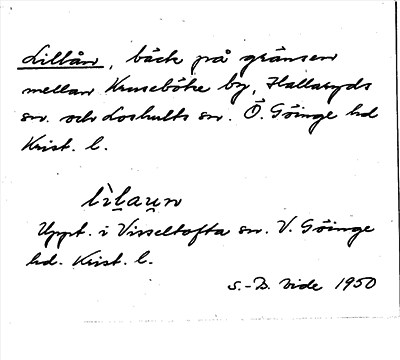 Lillån, bäck på gränsen
mellan Kruseböke by, Hallaryds
sn. och Loshults sn. Ö. Göinge hd
Krist. l.
lìlaun
Uppt. i Visseltofta sn. V. Göinge
hd. Krist. l.
S.-B. Vide 1950